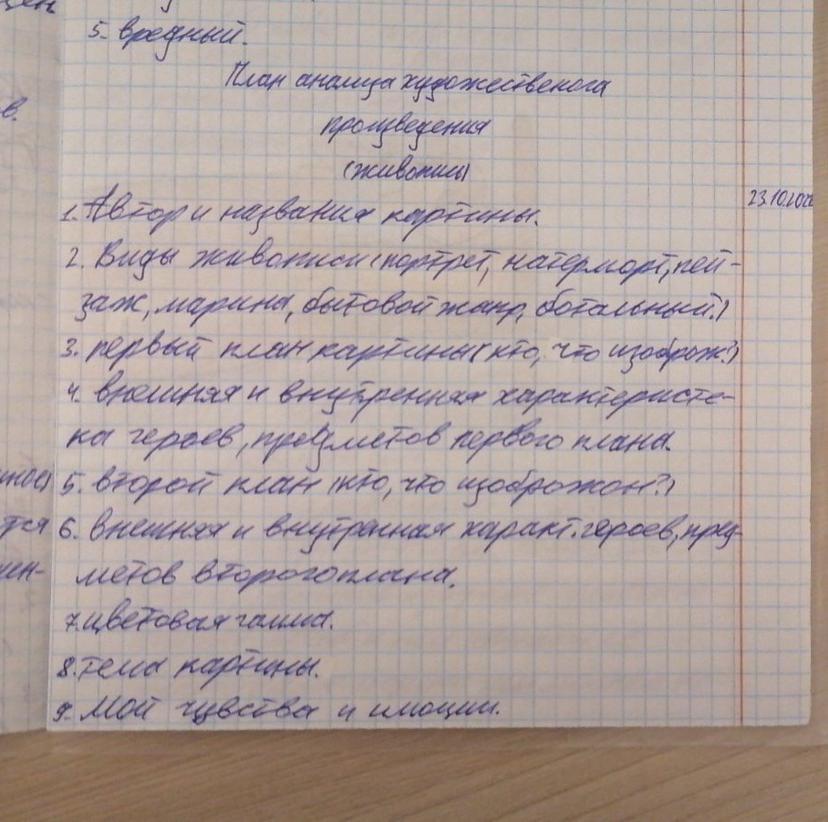 5. вредный.
План анализа художественога
произведения
(живописи)
23.10.202
1. Автор и названия картины.
2. Виды живописи (портрет, натерморт, пей-
заж, марина, бытовой жанр, ботальный.)
3. первый план картины (кто, что изоброж?)
4. внешняя и внутренняя характеристе-
ка героев, предметов первого плана.
5. второй план (кто, что изоброжон?)
6. внешняя и внутренная характ. героев, пред-
метов второго плана.
7. цветовая гамма.
8. тема картины.
9. Мои чувства и имоции.